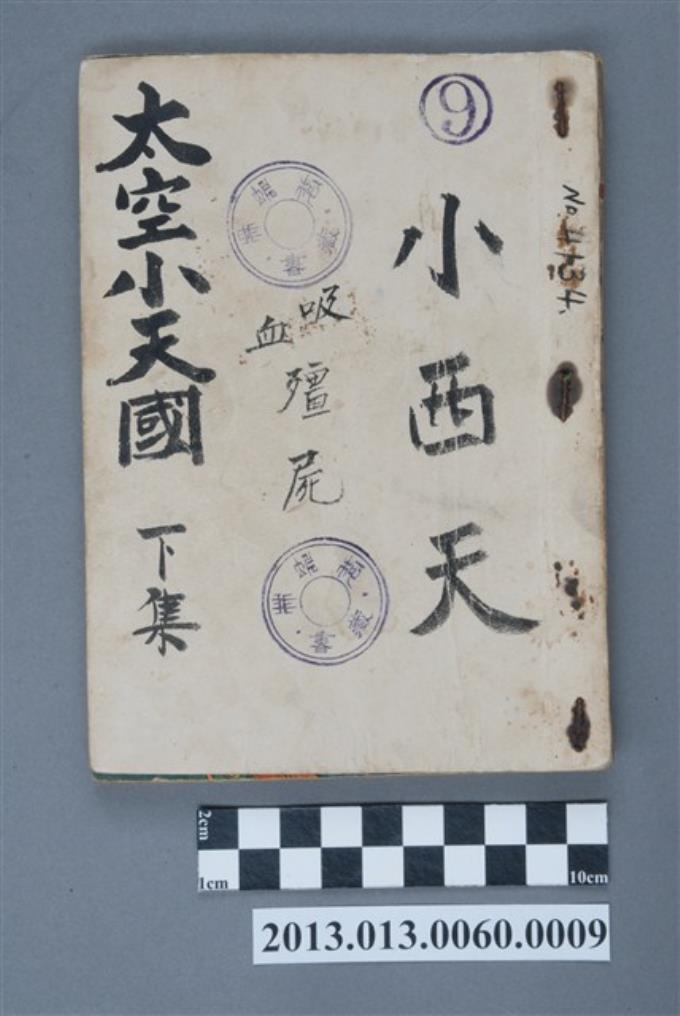 No. 4134.
⑨
小西天
藏書
吸血
殭屍
藏書
太空小天國 下集
2cm
1cm
10cm
2013.013.0060.0009